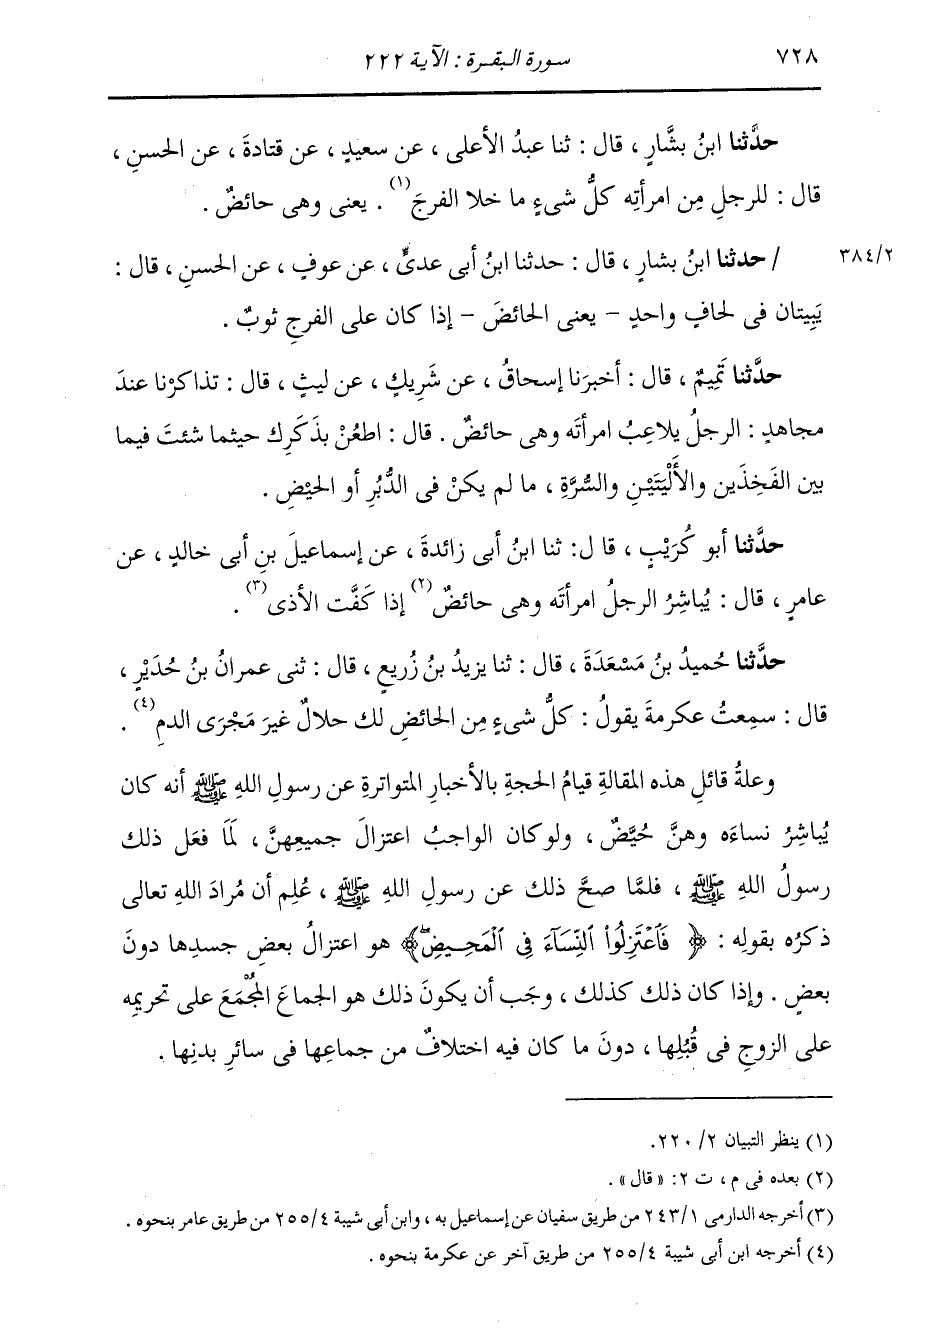 ٧٢٨
سورة البقرة : الآية ٢٢٢
حدَّثنا ابنُ بشَّارٍ ، قال : ثنا عبدُ الأعلى ، عن سعيدٍ ، عن قتادةَ ، عن الحسنِ ،
قال : للرجلِ مِن امرأتِه كلُّ شىءٍ ما خلا الفرجَ(١) . يعنى وهى حائضٌ .
٣٨٤/٢
/ حدثنا ابنُ بشارٍ ، قال : حدثنا ابنُ أبى عدىٍّ ، عن عوفٍ ، عن الحسنِ ، قال :
يَبِيتان فى لحافٍ واحدٍ - يعنى الحائضَ - إذا كان على الفرجِ ثوبٌ .
حدَّثنا تَمِيمٌ ، قال : أخبرَنا إسحاقُ ، عن شَرِيكٍ ، عن ليثٍ ، قال : تذاكرْنا عندَ
مجاهدٍ : الرجلُ يلاعِبُ امرأتَه وهى حائضٌ . قال : اطعُنْ بذَكَرِك حيثما شئتَ فيما
بين الفَخِذَين والأَلْيَتَيْنِ والسُّرَّةِ ، ما لم يكنْ فى الدُّبُرِ أو الحَيْضِ .
حدَّثنا أبو كُرَيْبٍ ، قا ل: ثنا ابنُ أبى زائدةَ ، عن إسماعيلَ بنِ أبى خالدٍ ، عن
عامرٍ ، قال : يُباشِرُ الرجلُ امرأتَه وهى حائضٌ(٢) إذا كَفَّت الأذى(٣) .
حدَّثنا حُميدُ بنُ مَسْعَدَةَ ، قال : ثنا يزيدُ بنُ زُريعٍ ، قال : ثنى عمرانُ بنُ حُدَيْرٍ ،
قال : سمِعتُ عكرمةَ يقولُ : كلُّ شىءٍ مِن الحائضِ لك حلالٌ غيرَ مَجْرَى الدمِ(٤) .
وعلةُ قائلِ هذه المقالةِ قيامُ الحجةِ بالأخبارِ المتواترةِ عن رسولِ اللهِ ﷺ أنه كان
يُباشِرُ نساءَه وهنَّ حُيَّضٌ ، ولوكان الواجبُ اعتزالَ جميعِهنَّ ، لَمَا فعَل ذلك
رسولُ اللهِ ﷺ ، فلمَّا صحَّ ذلك عن رسولِ اللهِ ﷺ ، عُلِم أن مُرادَ اللهِ تعالى
ذكرُه بقولِه : ﴿ فَٱعۡتَزِلُواْ ٱلنِّسَآءَ فِى ٱلۡمَحِيضِۖ ﴾ هو اعتزالُ بعضِ جسدِها دونَ
بعضٍ . وإذا كان ذلك كذلك ، وجَب أن يكونَ ذلك هو الجماعَ المُجْمَعَ على تحريمِه
على الزوجِ فى قُبُلِها ، دونَ ما كان فيه اختلافٌ من جماعِها فى سائرِ بدنِها .
(١) ينظر التبيان ٢/ ٢٢٠.
(٢) بعده فى م ، ت ٢: « قال» .
(٣) أخرجه الدارمى ٢٤٣/١ من طريق سفيان عن إسماعيل به ، وابن أبى شيبة ٢٥٥/٤ من طريق عامر بنحوه .
(٤) أخرجه ابن أبى شيبة ٢٥٥/٤ من طريق آخر عن عكرمة بنحوه .